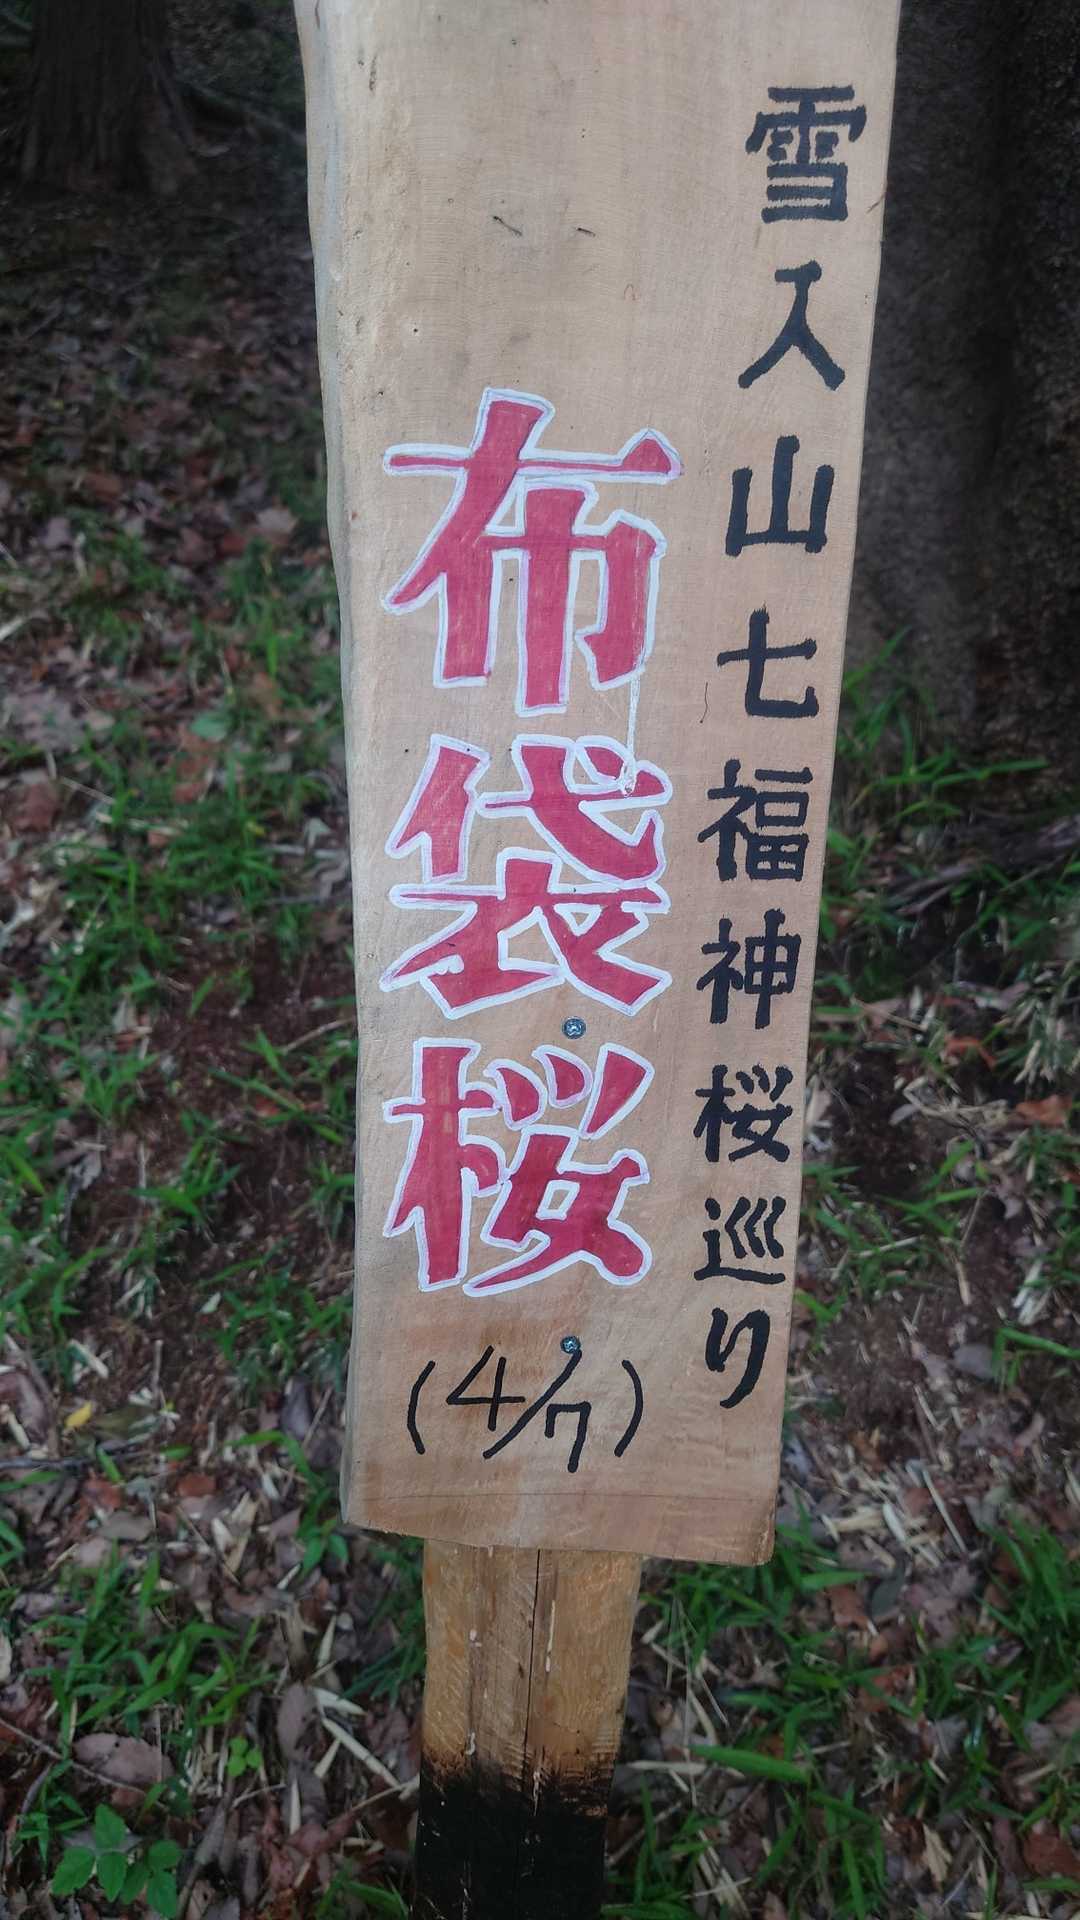 雪入山七福神桜巡り
布袋桜
(4/7)